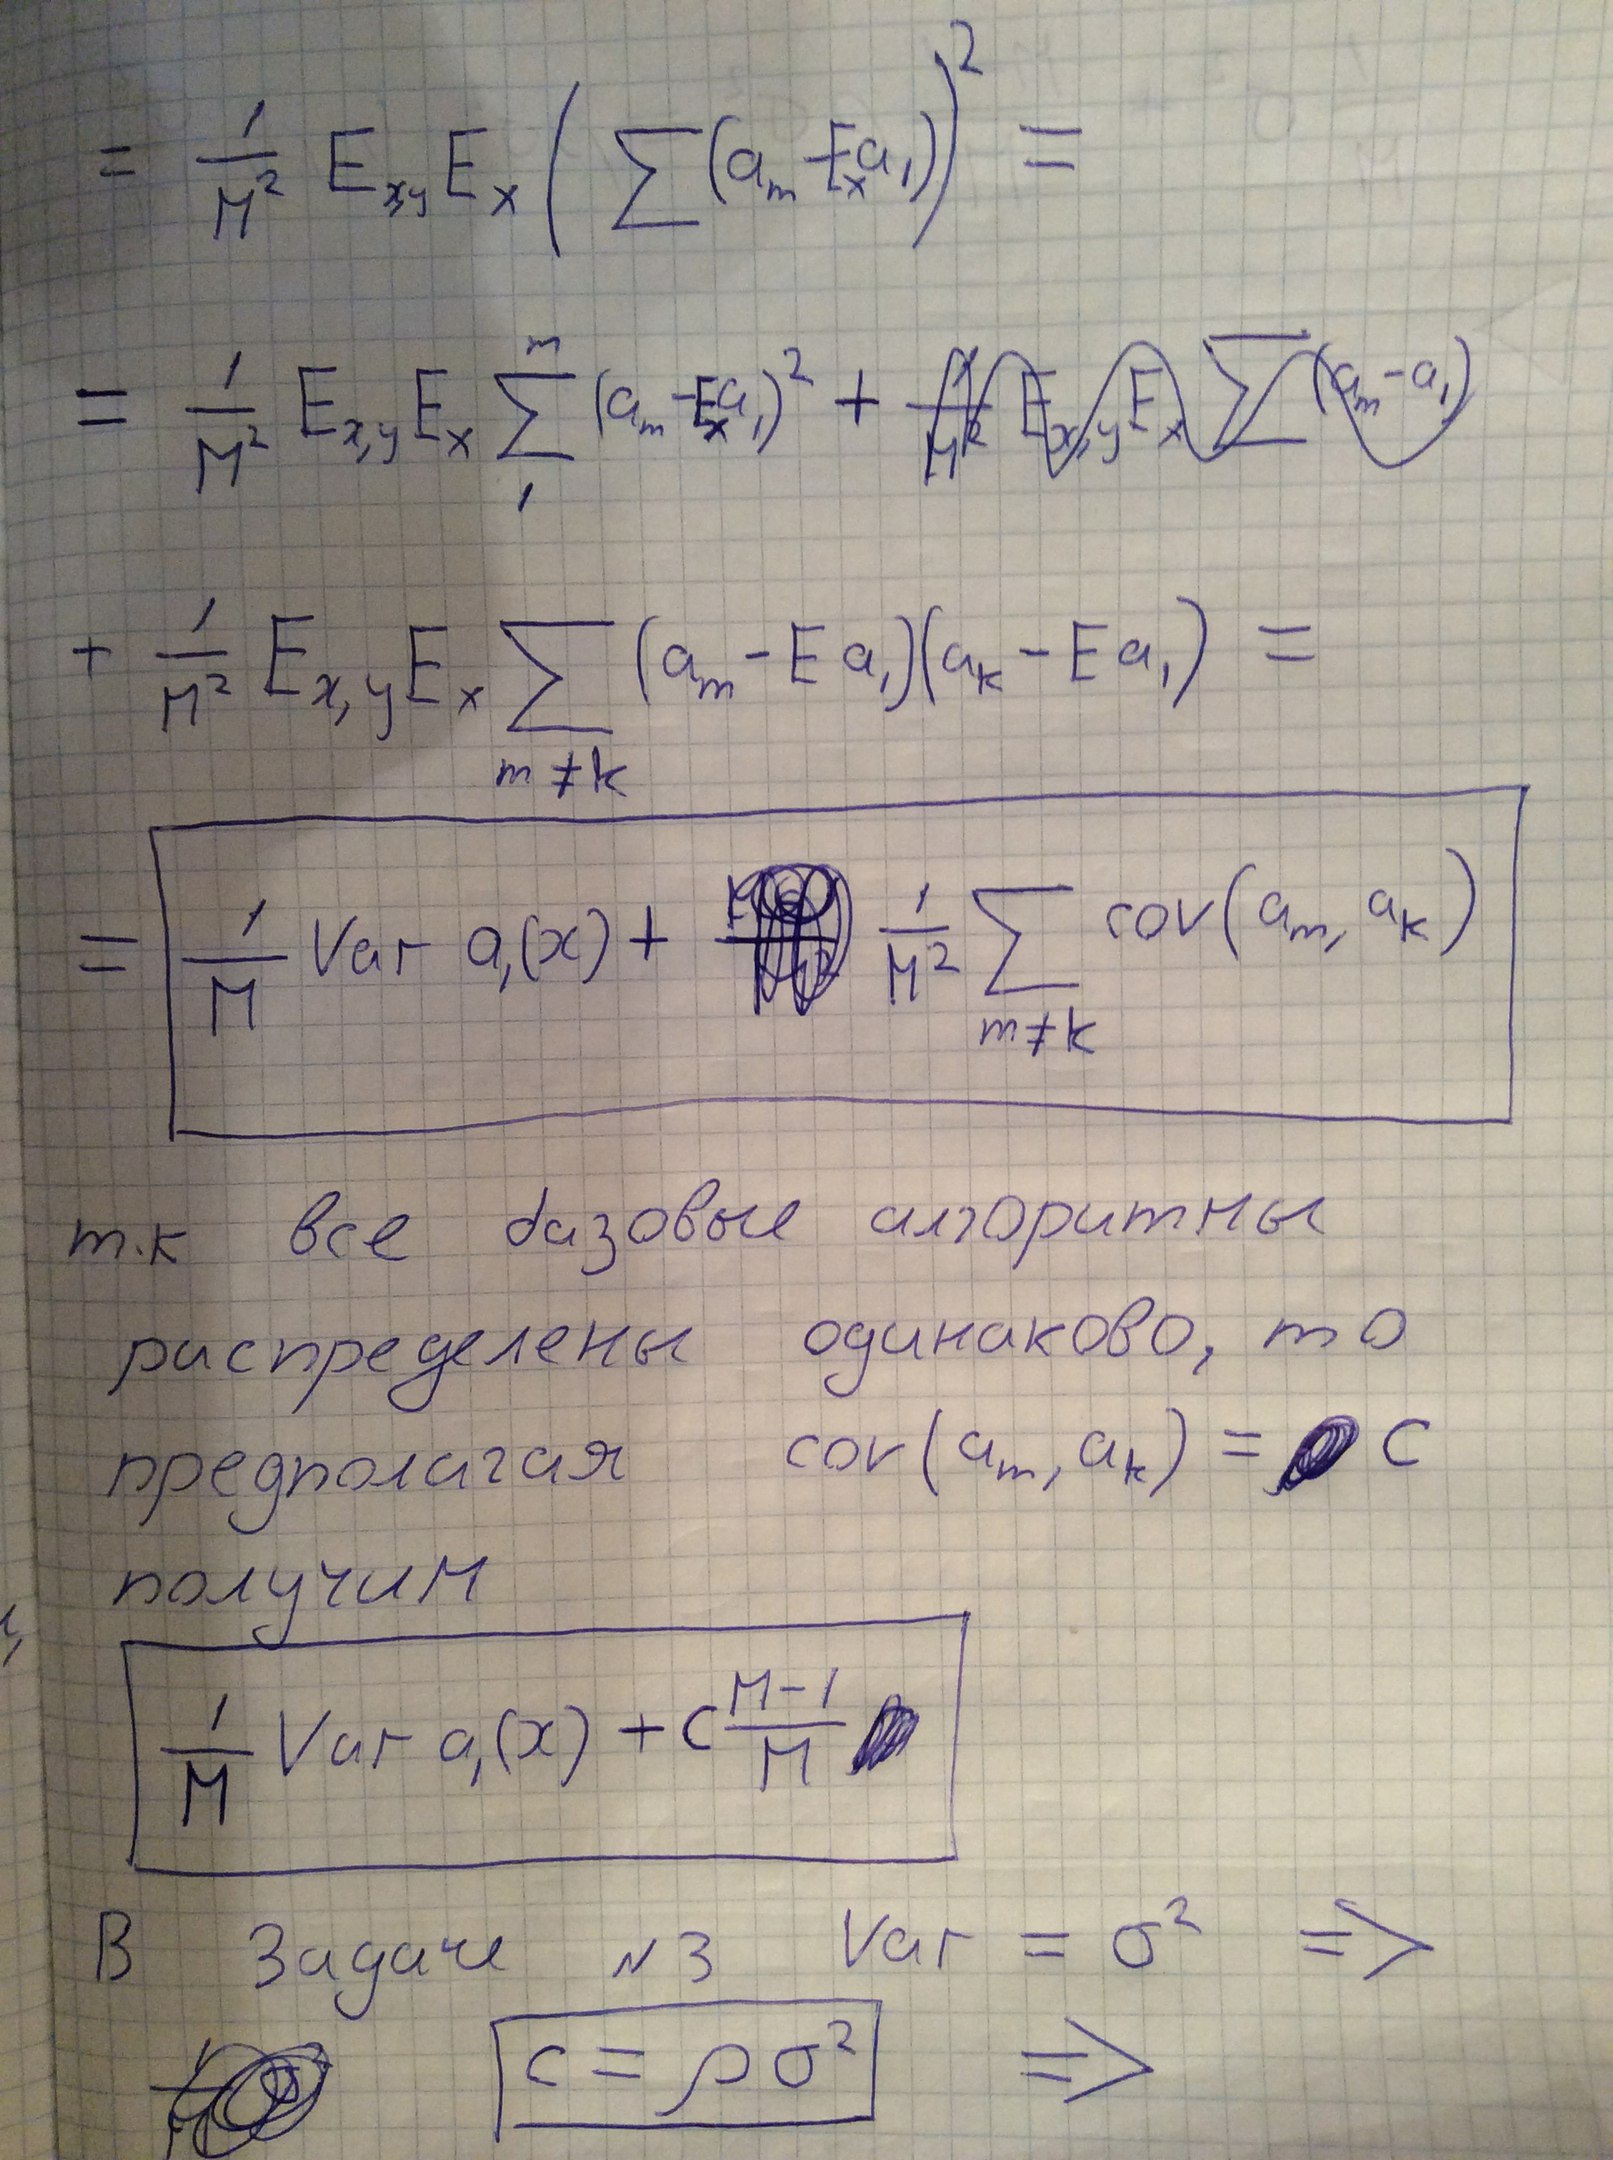 = 1/M² E_{x,y} E_X (∑(a_m - E_X a_1))² =
= 1/M² E_{x,y} E_X ∑_1^m (a_m - E_X a_1)² +
+ 1/M² E_{x,y} E_X ∑_{m≠k} (a_m - E a_1)(a_k - E a_1) =
= 1/M Var a_1(x) + 1/M² ∑_{m≠k} cov(a_m, a_k)
т.к все базовые алгоритмы
распределены одинаково, то
предполагая cov(a_m, a_k) = C
получим
1/M Var a_1(x) + C (M-1)/M
В Задаче №3 Var = σ² =>
C = ρσ² =>